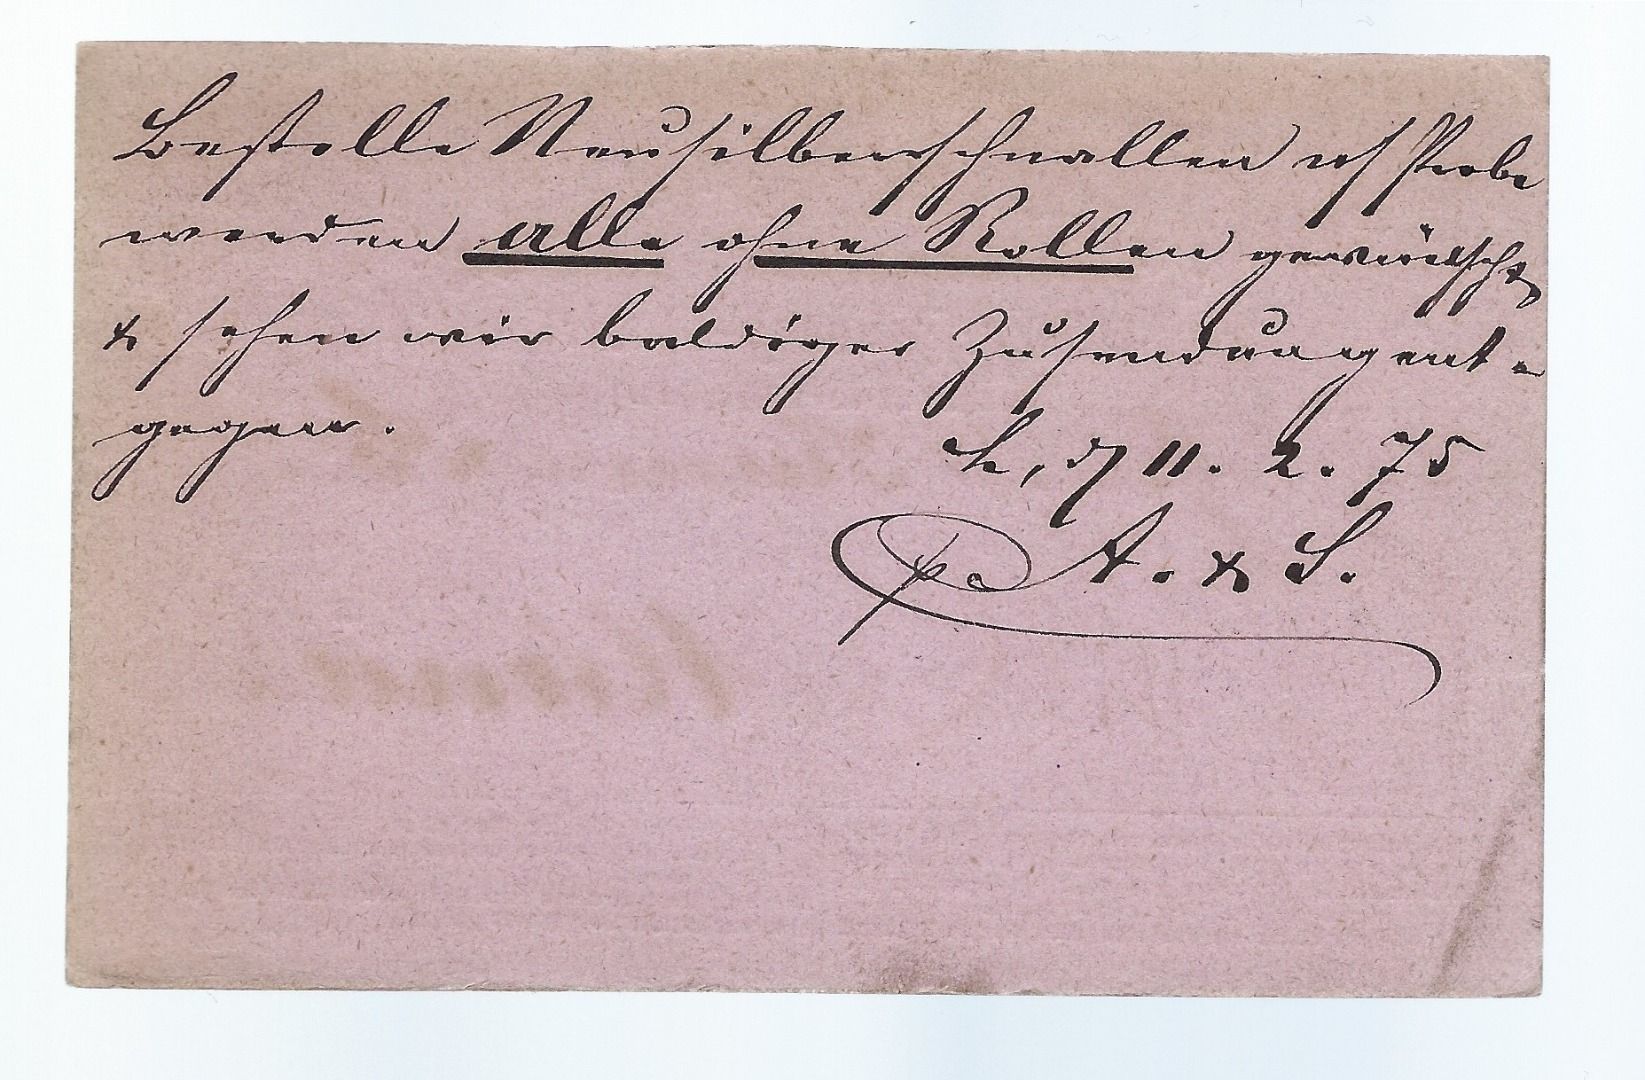 Bestelle Neusilberschnallen u/ Probe
werden alle ohne Rollen gewünscht
& sehen wir baldiger Zusendung ent-
gegen.
L, d/ 11. 2. 75
pa A. & S.